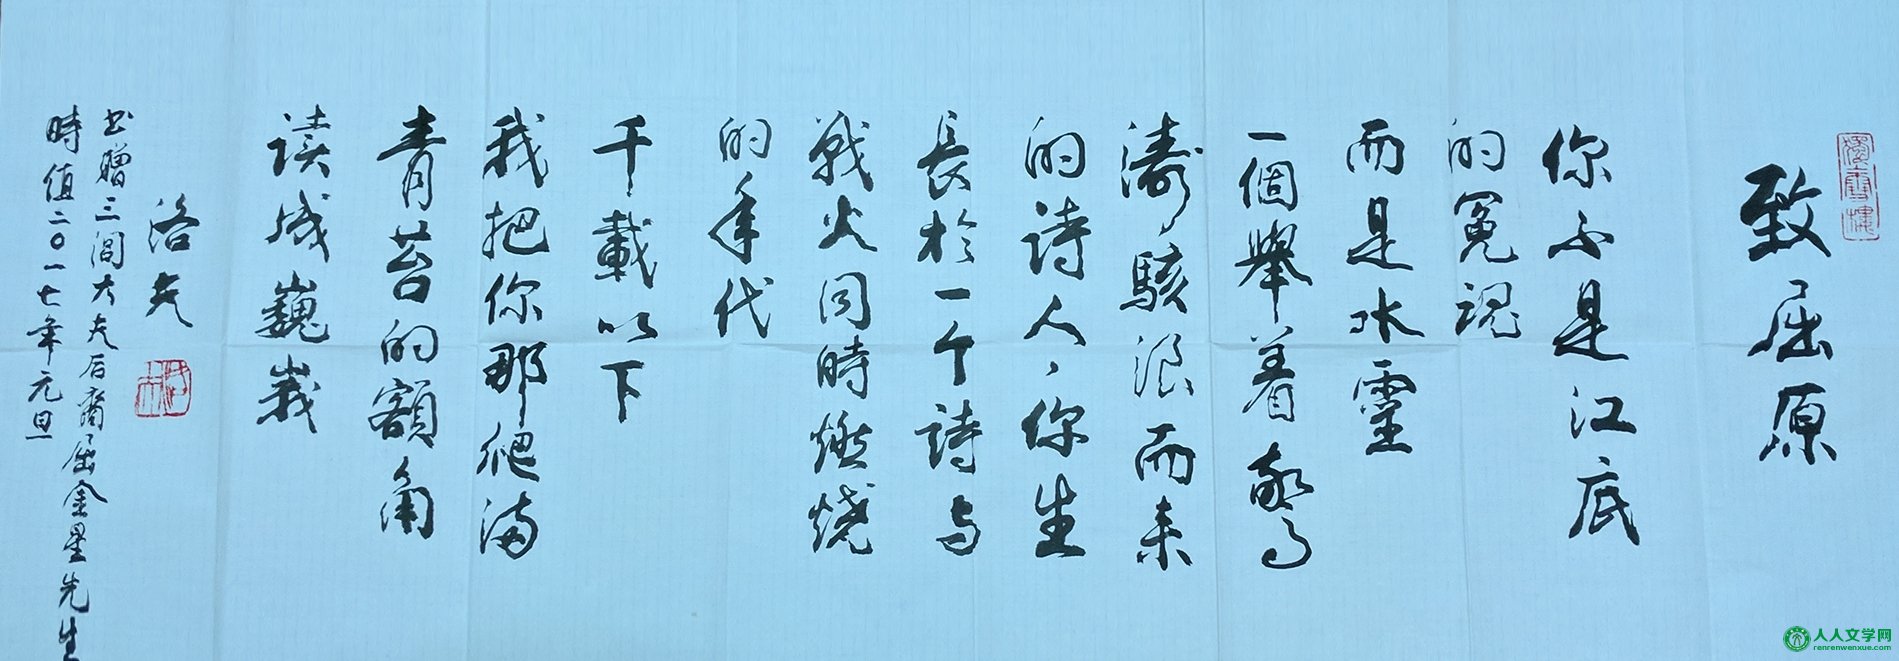 致屈原
你不是江底
的冤魂
而是水靈
一個舉着驚
濤駭浪而来
的詩人,你生
長於一个詩与
戰火同時燃燒
的年代
千載以下
我把你那爬满
青苔的額角
读成巍峩
洛夫
书贈三閭大夫后裔屈金星先生
時值二〇一七年元旦
人人文学网
renrenwenxue.com